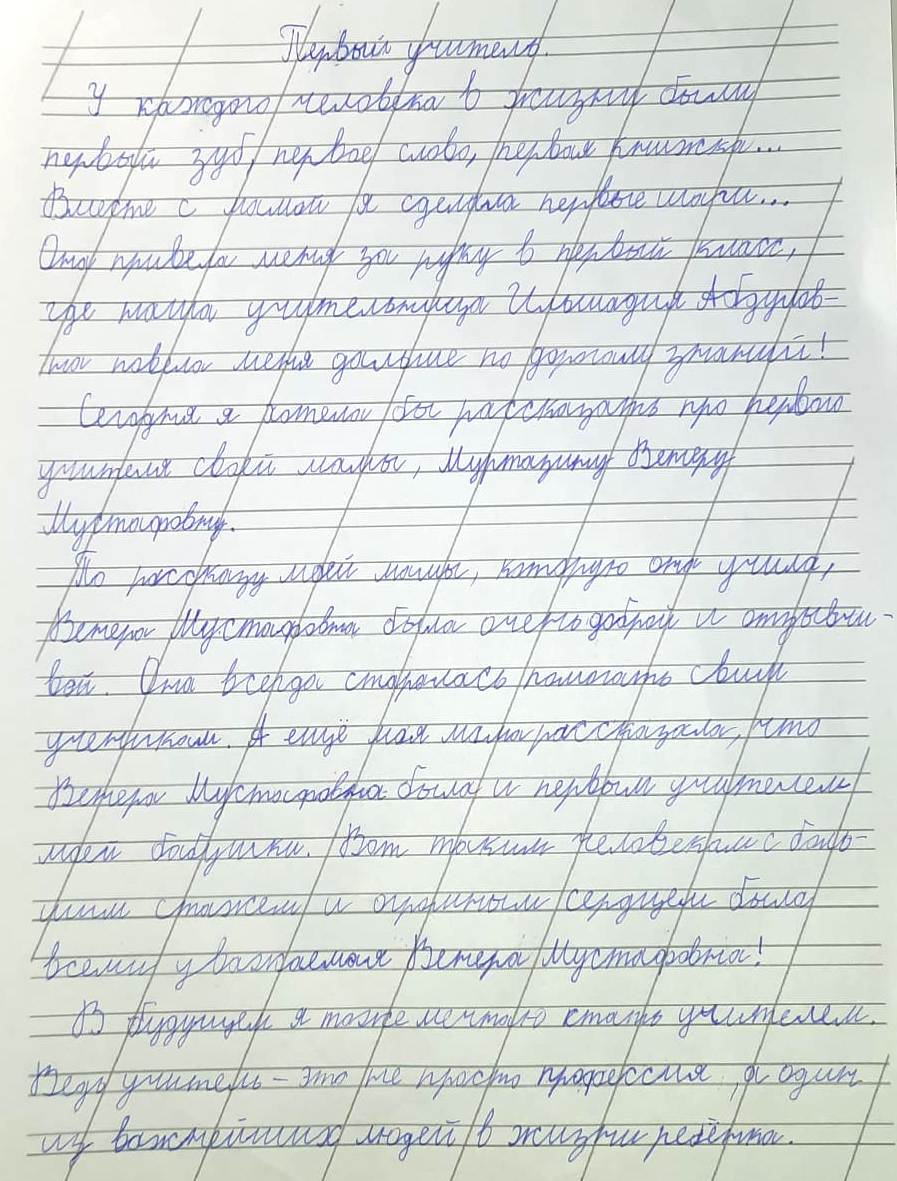 Первый учитель.
У каждого человека в жизни были
первый зуб, первое слово, первая книжка...
Вместе с мамой я сделала первые шаги...
Она привела меня за руку в первый класс,
где наша учительница Ильшадия Абдулов-
на повела меня дальше по дорогам знаний!
Сегодня я хотела бы рассказать про первого
учителя своей мамы, Муртазину Венеру
Мустафовну.
По рассказу моей мамы, которую она учила,
Венера Мустафовна была очень доброй и отзывчи-
вой. Она всегда старалась помогать своим
ученикам. А ещё моя мама рассказала, что
Венера Мустафовна была и первым учителем
моей бабушки. Вот таким человеком с боль-
шим стажем и огромным сердцем была
всеми уважаемая Венера Мустафовна!
В будущем я тоже мечтаю стать учителем.
Ведь учитель – это не просто профессия, а один
из важнейших людей в жизни ребёнка.